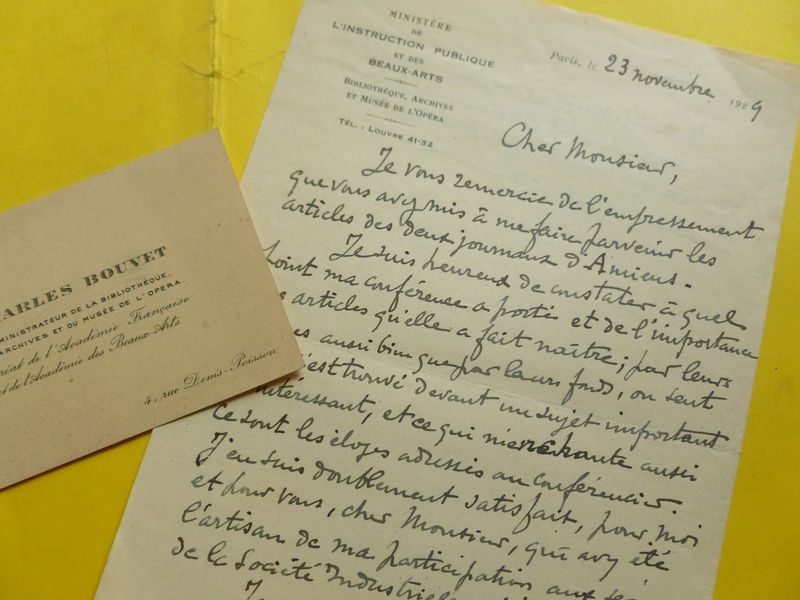 MINISTÈRE
DE
L'INSTRUCTION PUBLIQUE
ET DES
BEAUX-ARTS
BIBLIOTHÈQUE, ARCHIVES
ET MUSÉE DE L'OPÉRA
TÉL. : LOUVRE 41-32
Paris, le 23 novembre 1929
Cher Monsieur,
Je vous remercie de l'empressement
que vous avez mis à me faire parvenir les
articles des deux journaux d'Amiens.
Je suis heureux de constater à quel
point ma conférence a porté et de l'importance
articles qu'elle a fait naître ; par leurs
aussi bien que par leurs fonds, on sent
est trouvé devant un sujet important
intéressant, et ce qui m'enchante aussi
ce sont les éloges adressés au conférencier.
J'en suis doublement satisfait, pour moi
et pour vous, cher Monsieur, qui avez été
l'artisan de ma participation aux
de la Société Industrielle
ARLES BOUVET
MINISTRATEUR DE LA BIBLIOTHÈQUE,
ARCHIVES ET DU MUSÉE DE L'OPÉRA
réat de l'Académie Française
et de l'Académie des Beaux-Arts
4, rue Denis-Poisson